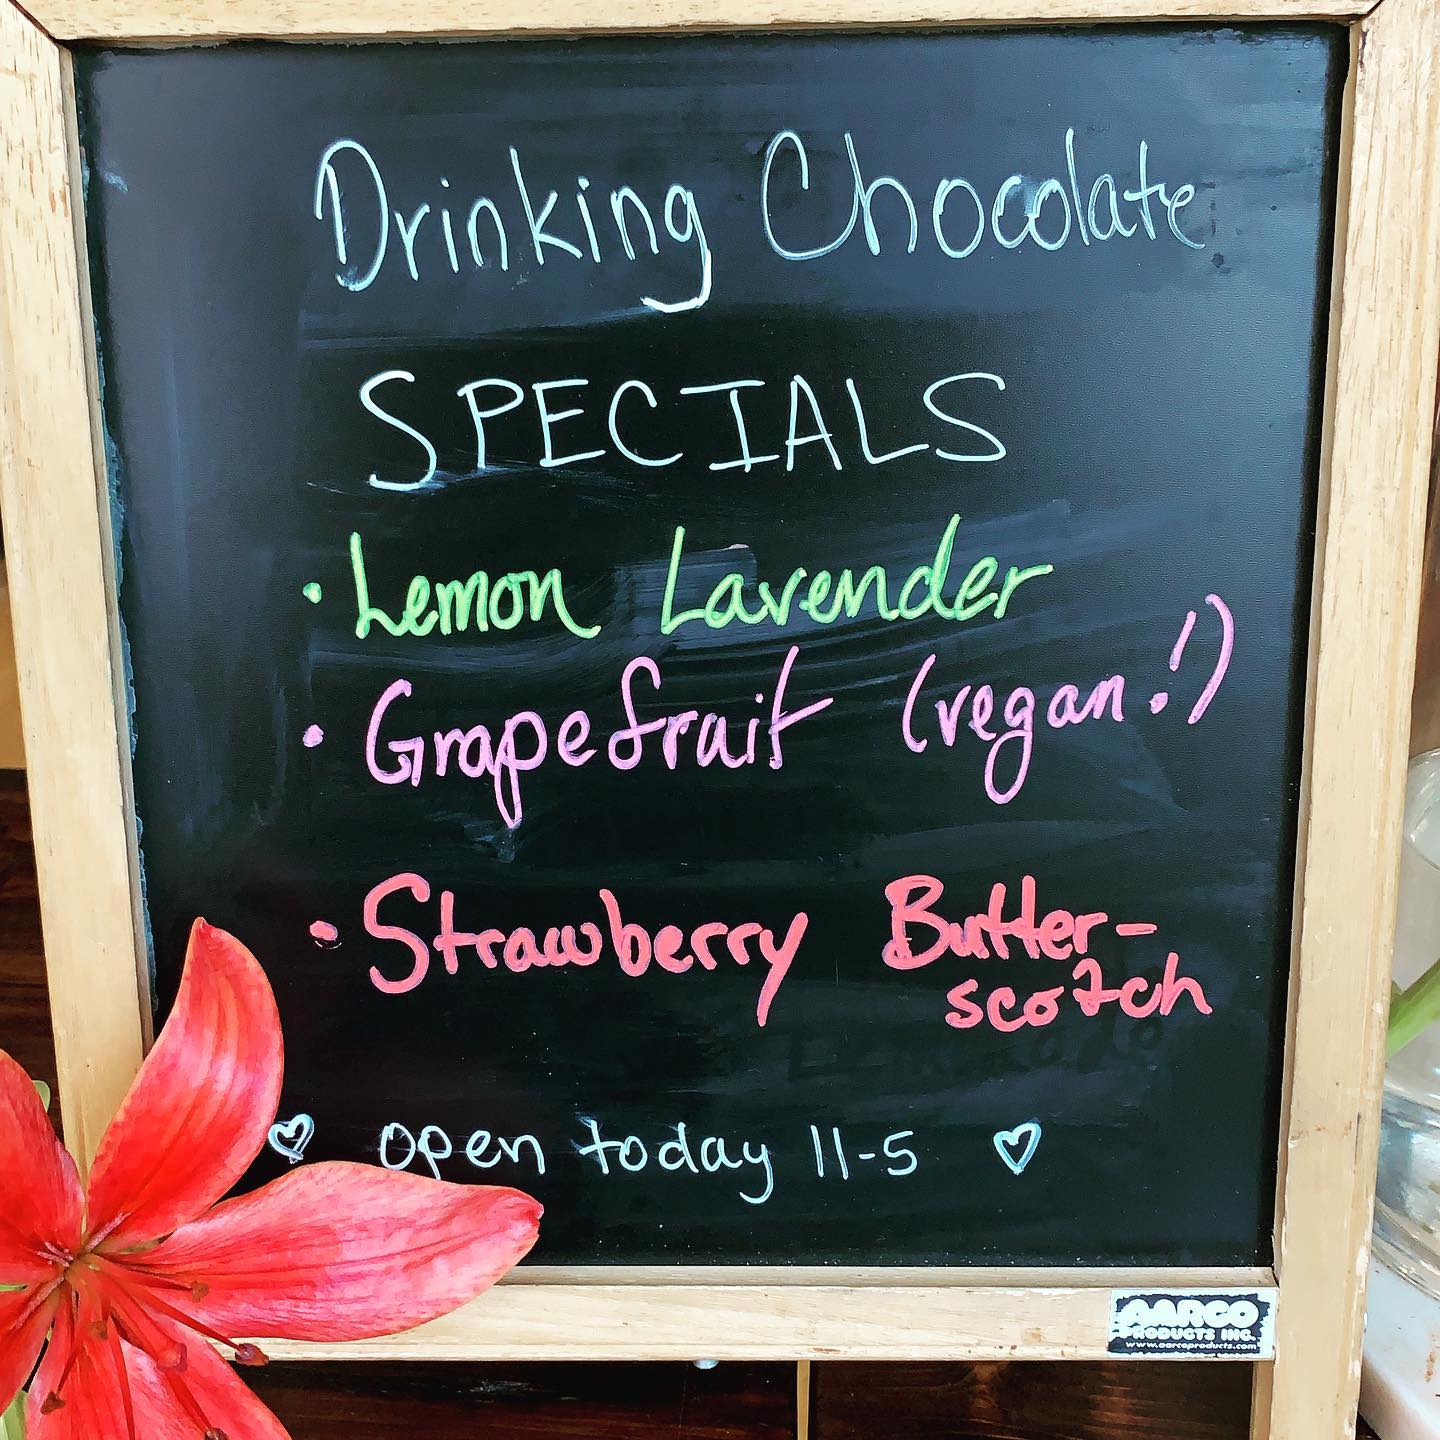 Drinking Chocolate
SPECIALS
• Lemon Lavender
• Grapefruit (vegan!)
• Strawberry Butter-
scotch
♡ open today 11-5 ♡
AARCO
PRODUCTS INC.
www.aarcoproducts.com